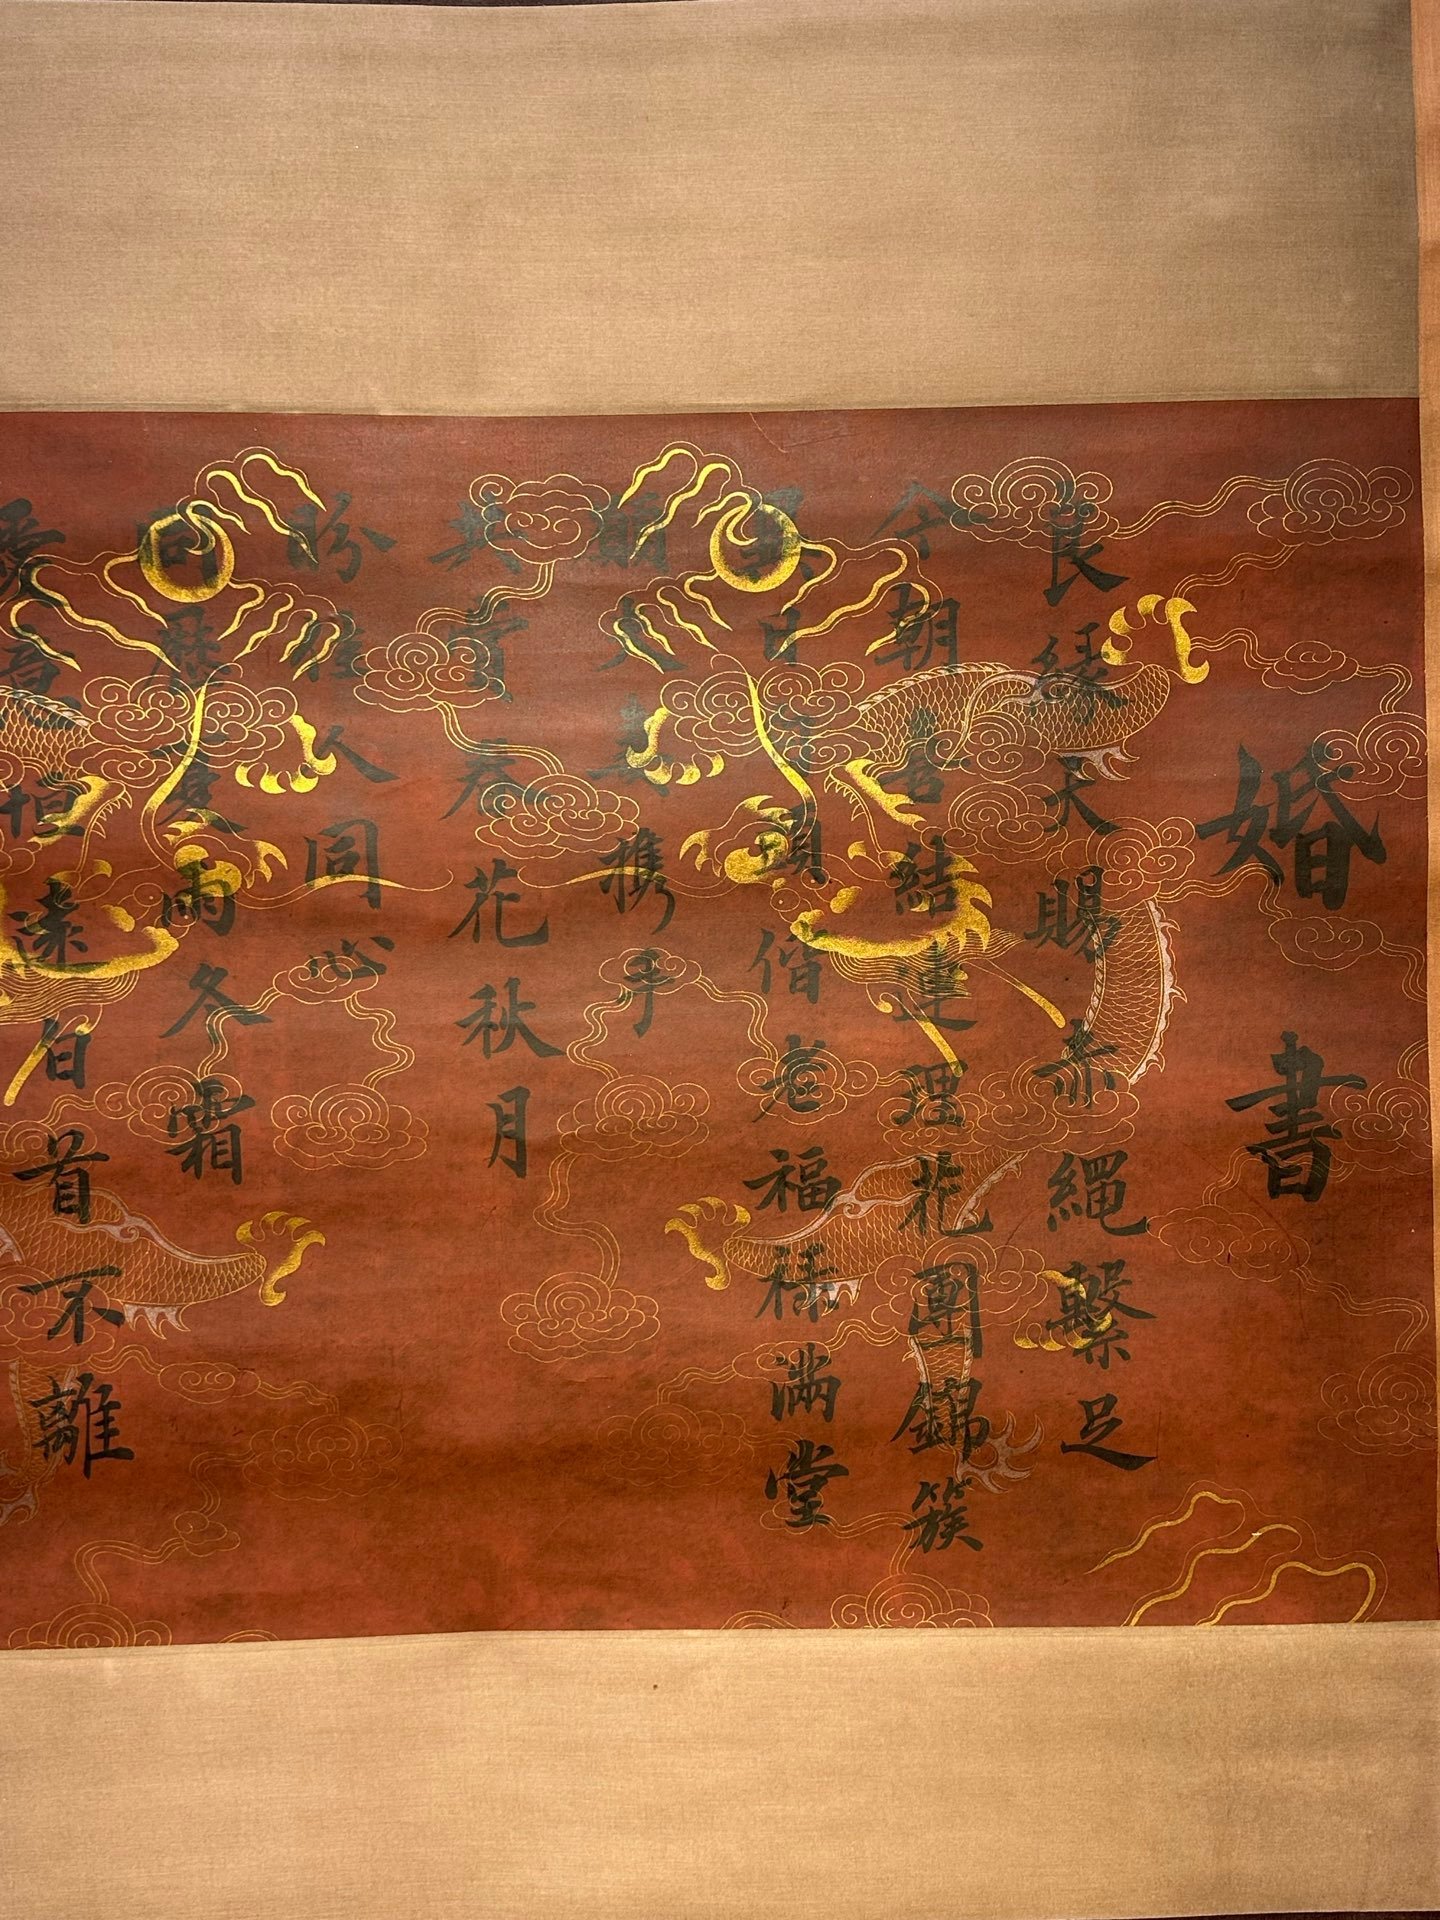 婚書
良緣天賜赤繩繫足
今朝喜結連理花團錦簇
日白頭偕老福祿滿堂
願夫妻携手
共賞春花秋月
盼佳人同心
同歷夏雨冬霜
愛意恒遠白首不離